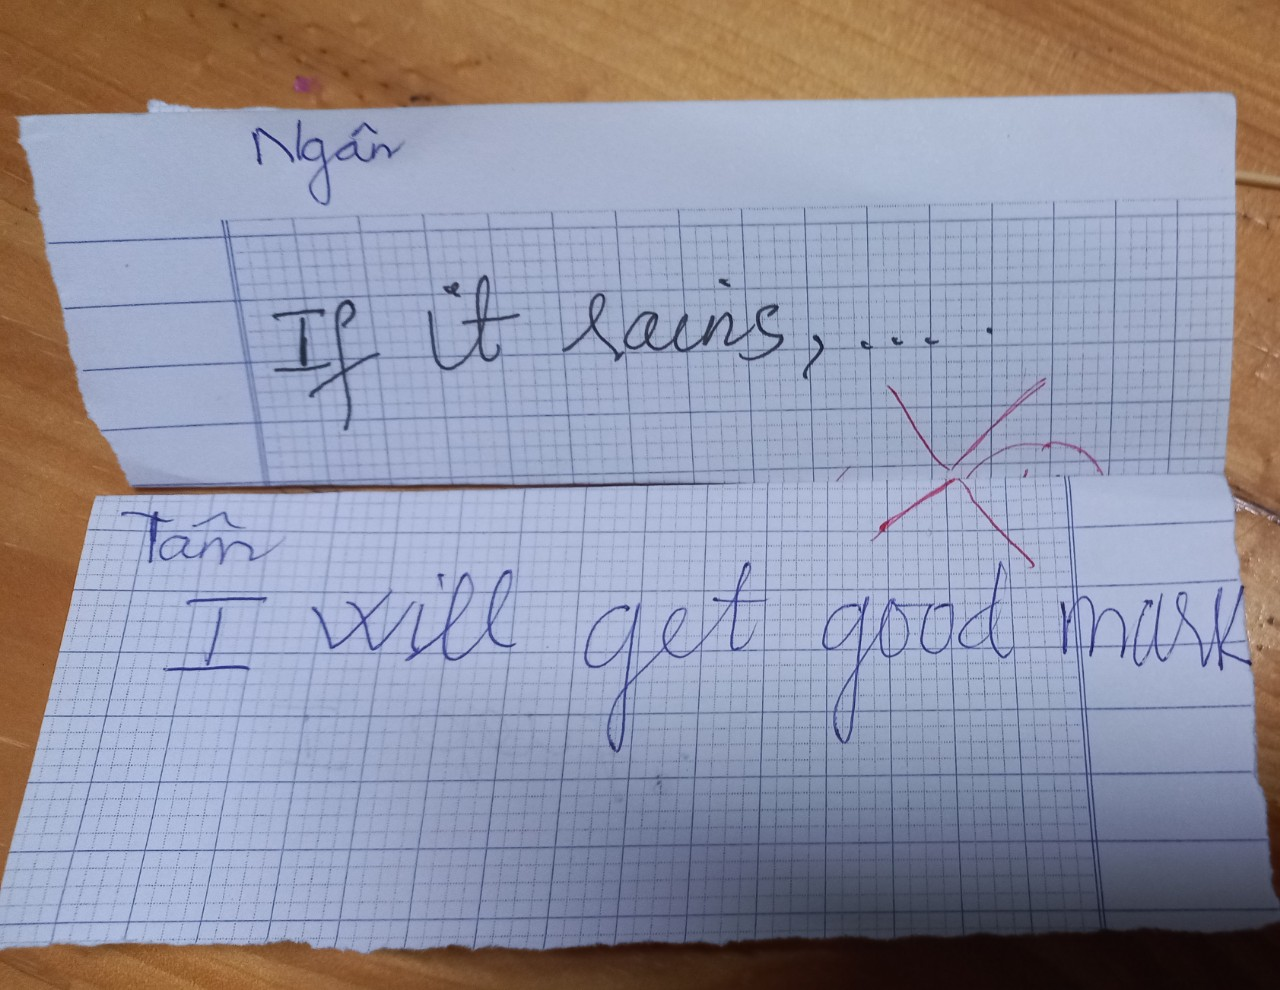 Ngân
If it rains, ... .
Tâm
I will get good mark